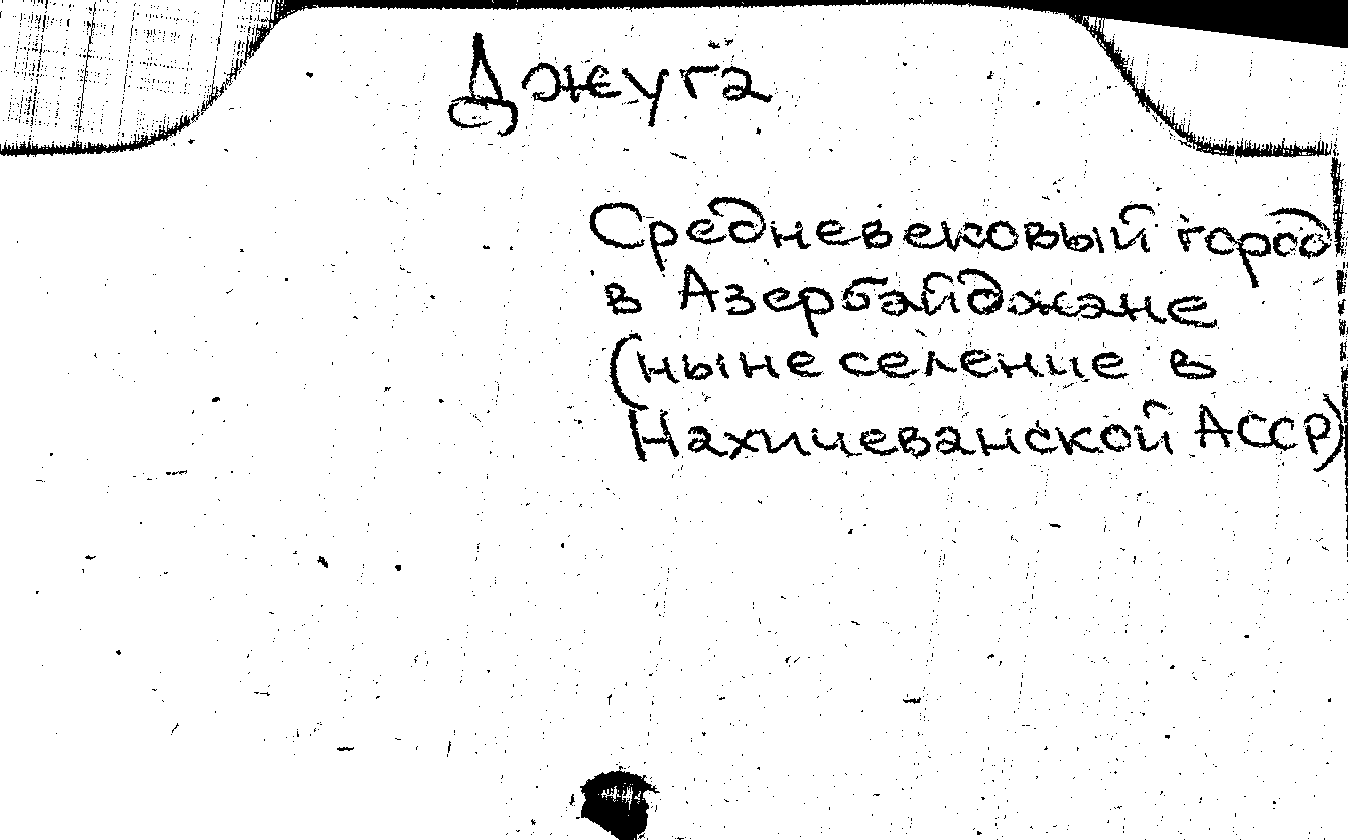 Джуга
Средневековый город
в Азербайджане
(ныне селение в
Нахичеванской АССР)